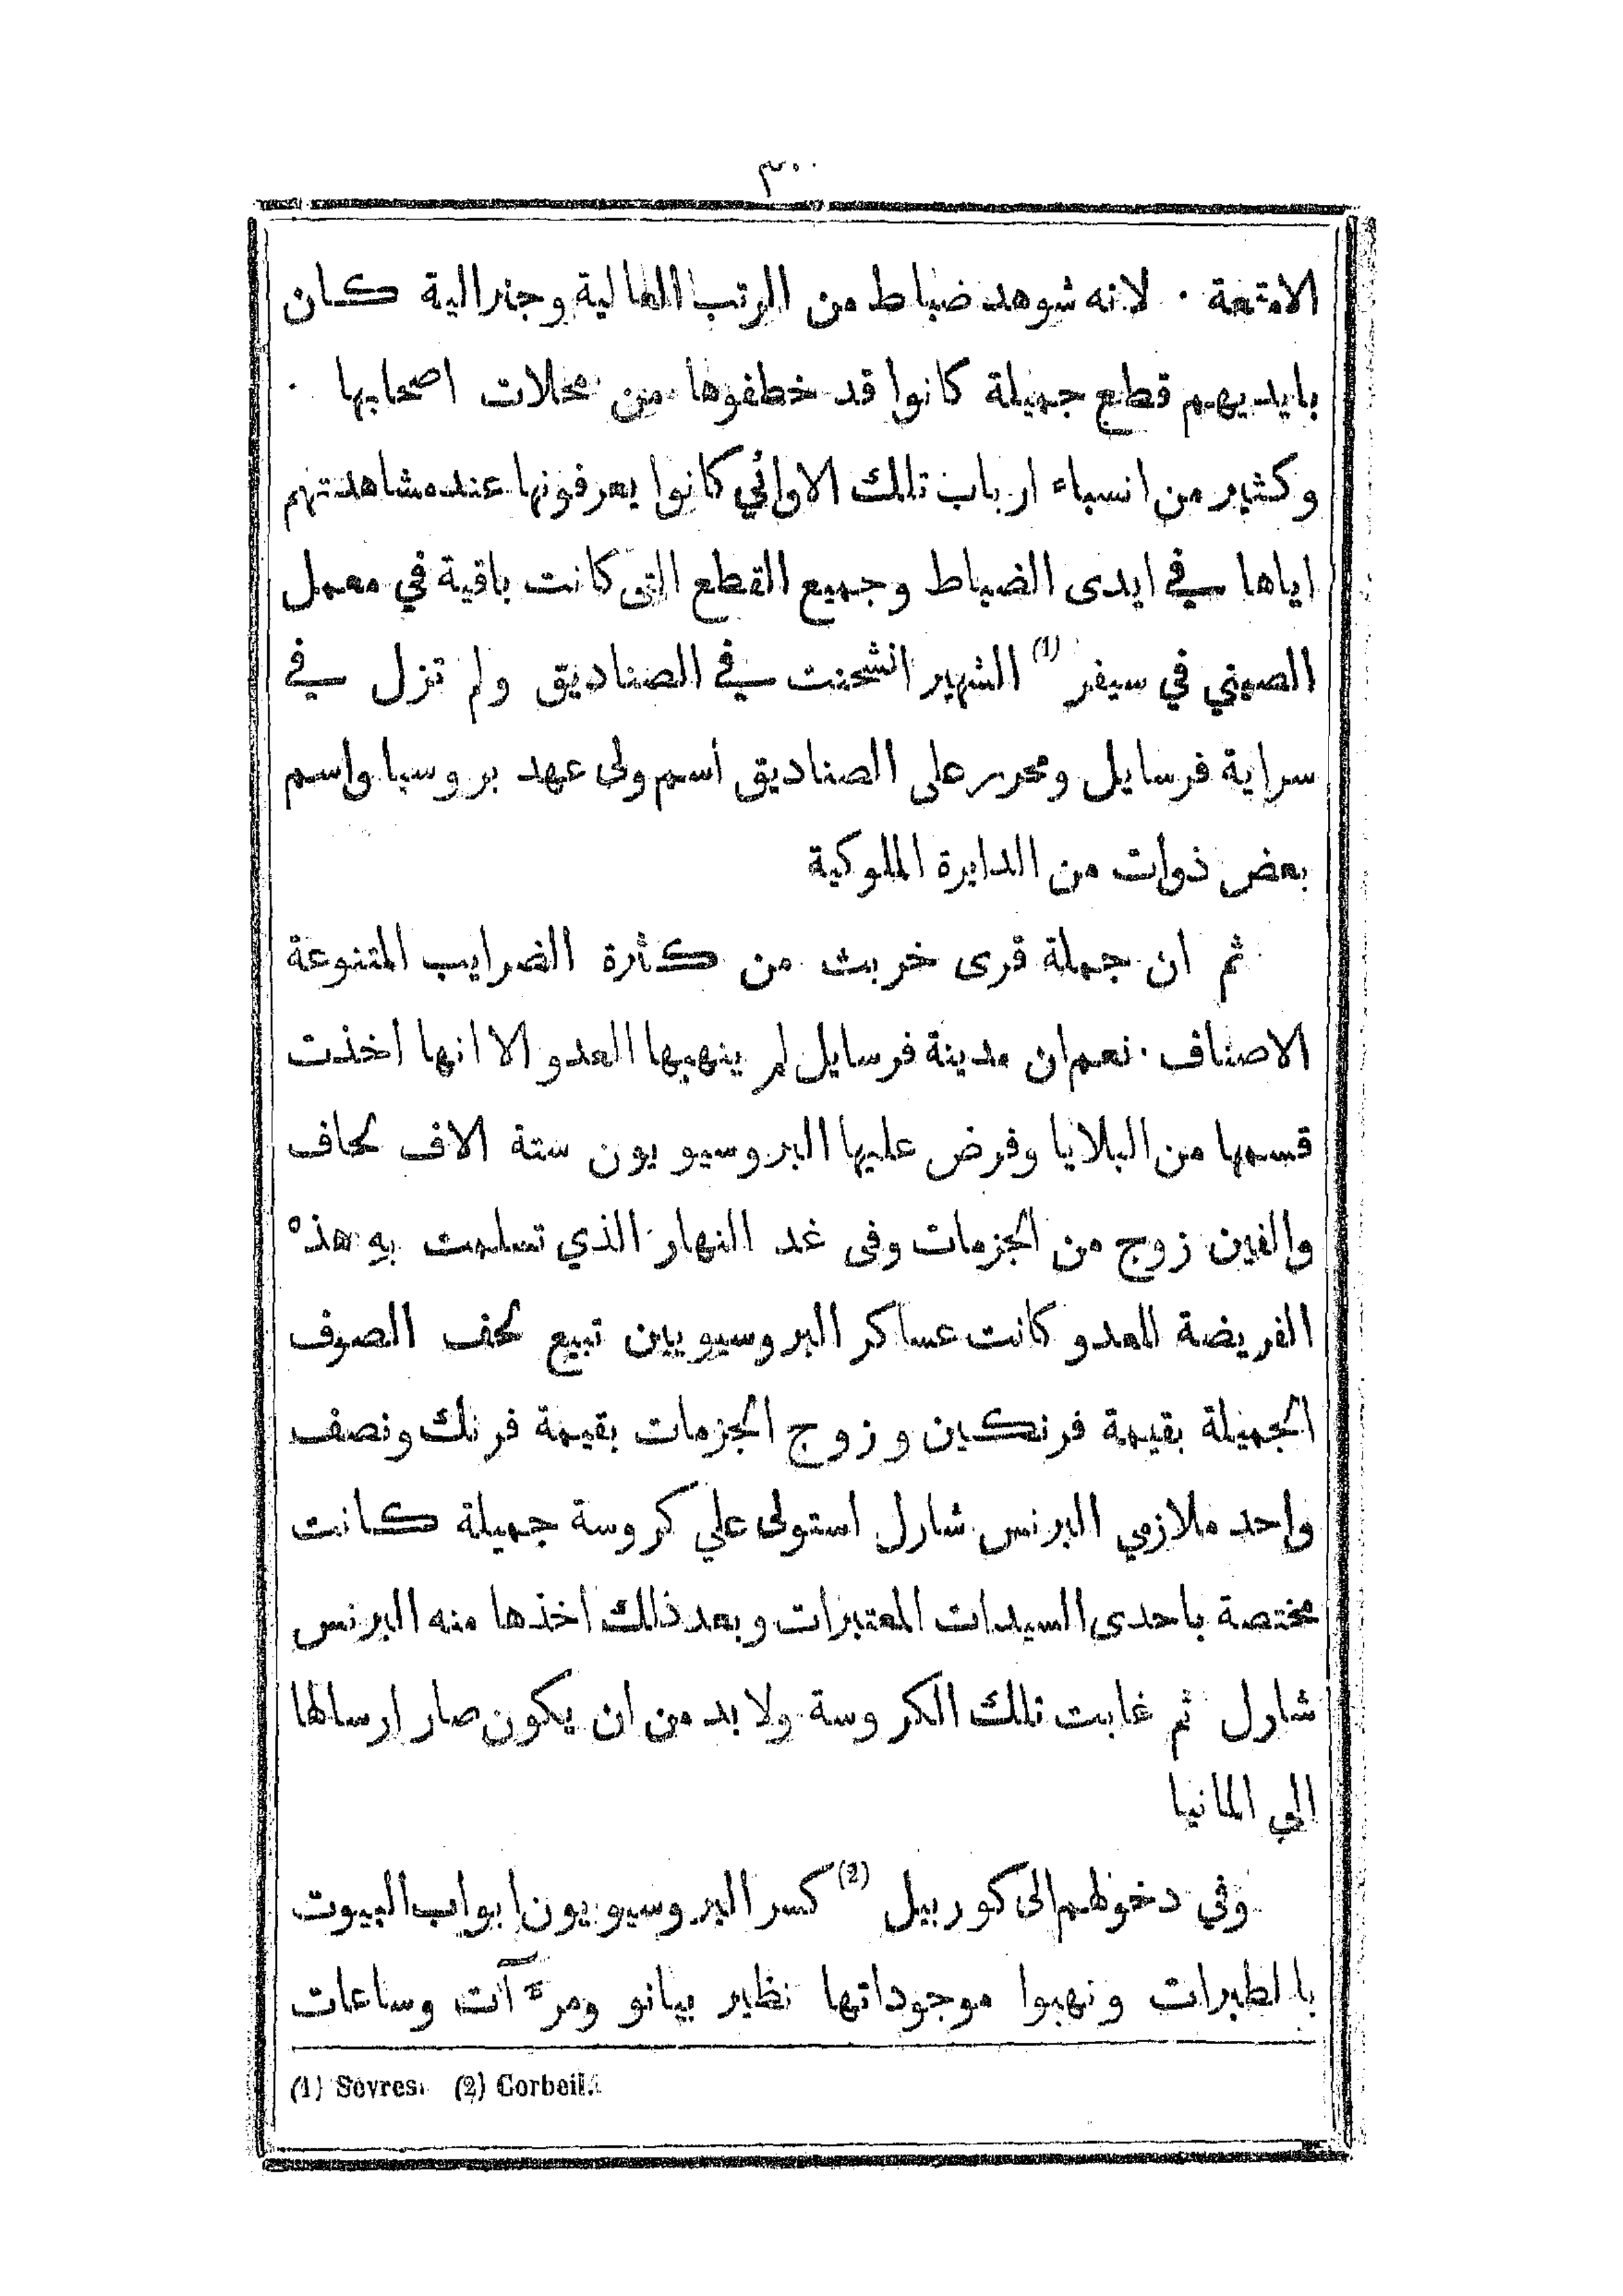 ٣٠٠
الامتعة ٠ لانه شوهد ضباط من الرتب العالية وجنرالية كان
بايديهم قطع جميلة كانوا قد خطفوها من محلات اصحابها ٠
وكثير من انسباء ارباب تلك الاوائي كانوا يعرفونها عند مشاهدتهم
اياها في ايدى الضباط وجميع القطع التى كانت باقية في معمل
الصيني في سيفر (1) الشهير انشحنت في الصناديق ولم تزل في
سراية فرسايل ومحرر على الصناديق اسم ولى عهد بروسيا واسم
بعض ذوات من الدايرة الملوكية
ثم ان جملة قرى خربت من كثرة الضرايب المتنوعة
الاصناف ٠ نعم ان مدينة فرسايل لم ينهبها العدو الا انها اخذت
قسمها من البلايا وفرض عليها البروسيويون ستة الاف لحاف
والفين زوج من الجزمات وفى غد النهار الذي تسلمت به هذه
الفريضة للعدو كانت عساكر البروسيويين تبيع لحف الصوف
الجميلة بقيمة فرنكين وزوج الجزمات بقيمة فرنك ونصف
واحد ملازمي البرنس شارل استولى علي كروسة جميلة كانت
مختصة باحدى السيدات المعتبرات وبعد ذلك اخذها منه البرنس
شارل ثم غابت تلك الكروسة ولا بد من ان يكون صار ارسالها
الي المانيا
وفي دخولهم الى كوربيل (2) كسر البروسيويون ابواب البيوت
بالطبرات ونهبوا موجوداتها نظير بيانو ومرآت وساعات
(1) Sevres. (2) Corbeil.